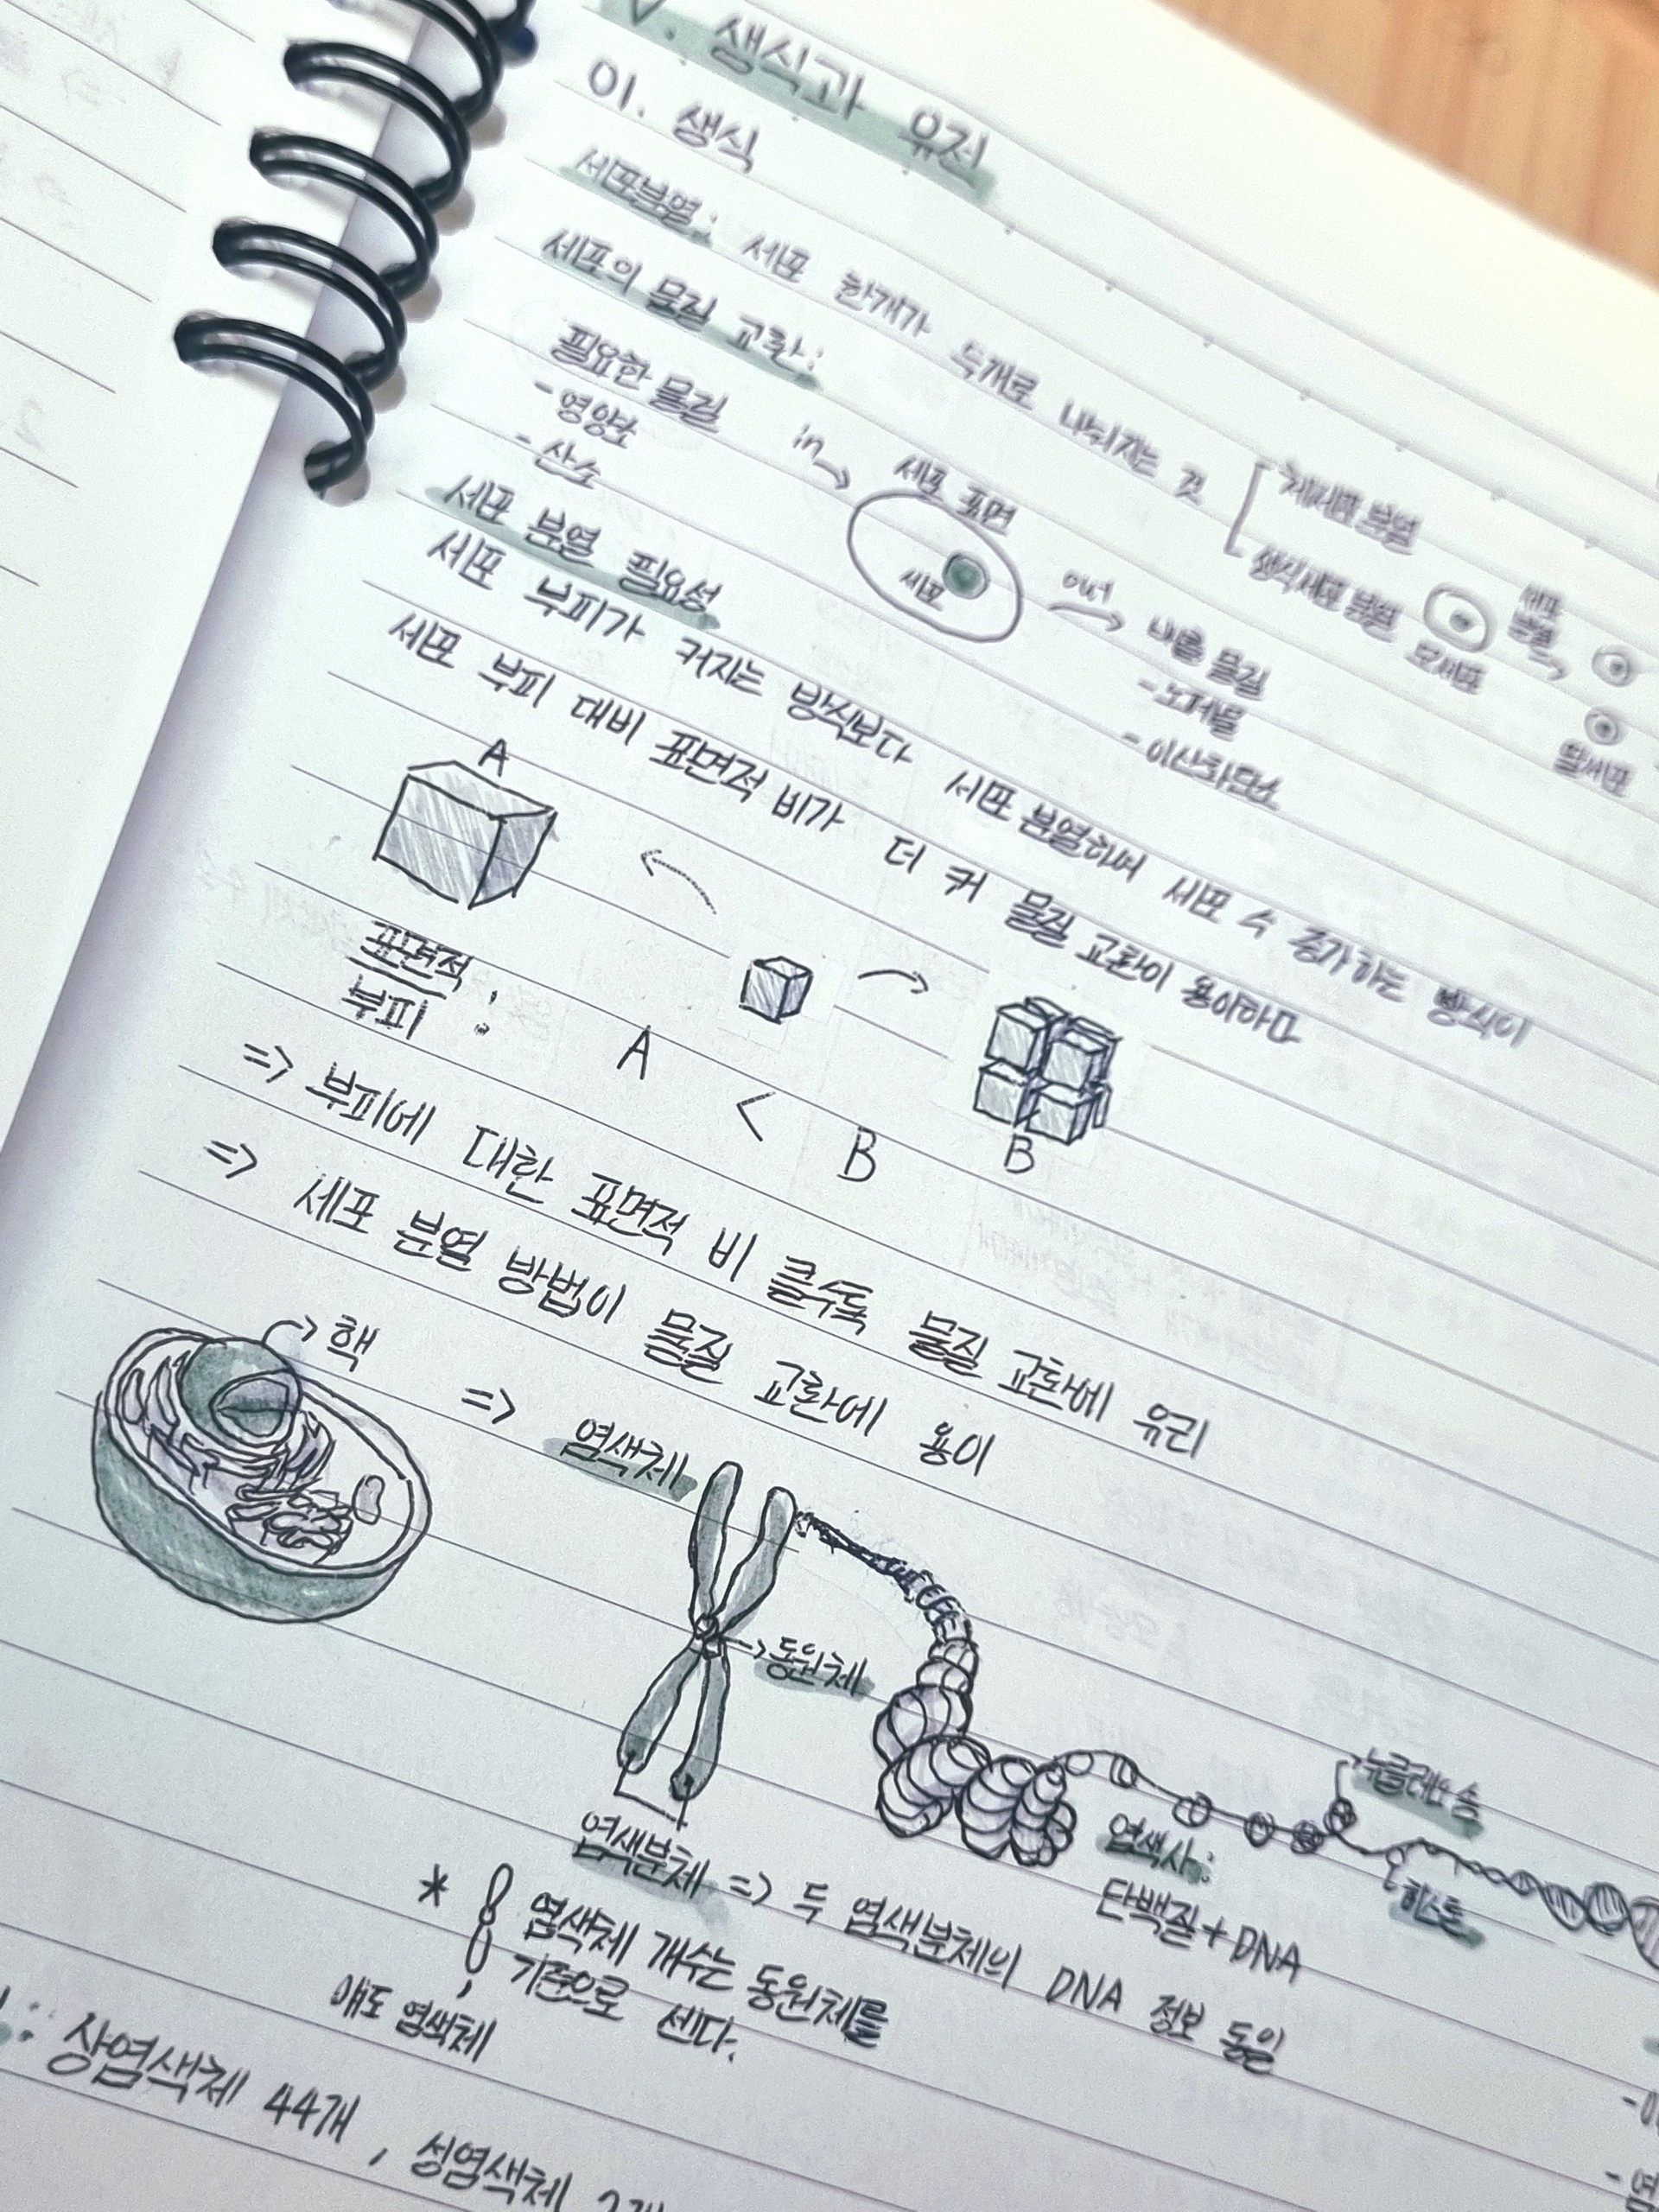 V. 생식과 유전
01. 생식
세포분열: 세포 한개가 두개로 나눠지는 것
체세포 분열
생식세포 분열
모세포
세포 분열
딸세포
세포의 물질 교환:
필요한 물질
- 영양소
- 산소
in
세포 표면
세포
out
내용 물질
- 노폐물
- 이산화탄소
세포 분열 필요성
세포 부피가 커지는 방식보다 세포 분열하여 세포 수 증가하는 방식이
세포 부피 대비 표면적 비가 더 커 물질 교환이 용이하다
A
B
표면적
부피 : A < B
=> 부피에 대한 표면적 비 클수록 물질 교환에 유리
=> 세포 분열 방법이 물질 교환에 용이
핵
=> 염색체
동원체
뉴클레오솜
히스톤
염색사:
단백질+DNA
염색분체 => 두 염색분체의 DNA 정보 동일
* 염색체 개수는 동원체를
기준으로 센다.
얘도 염색체
: 상염색체 44개, 성염색체 2개